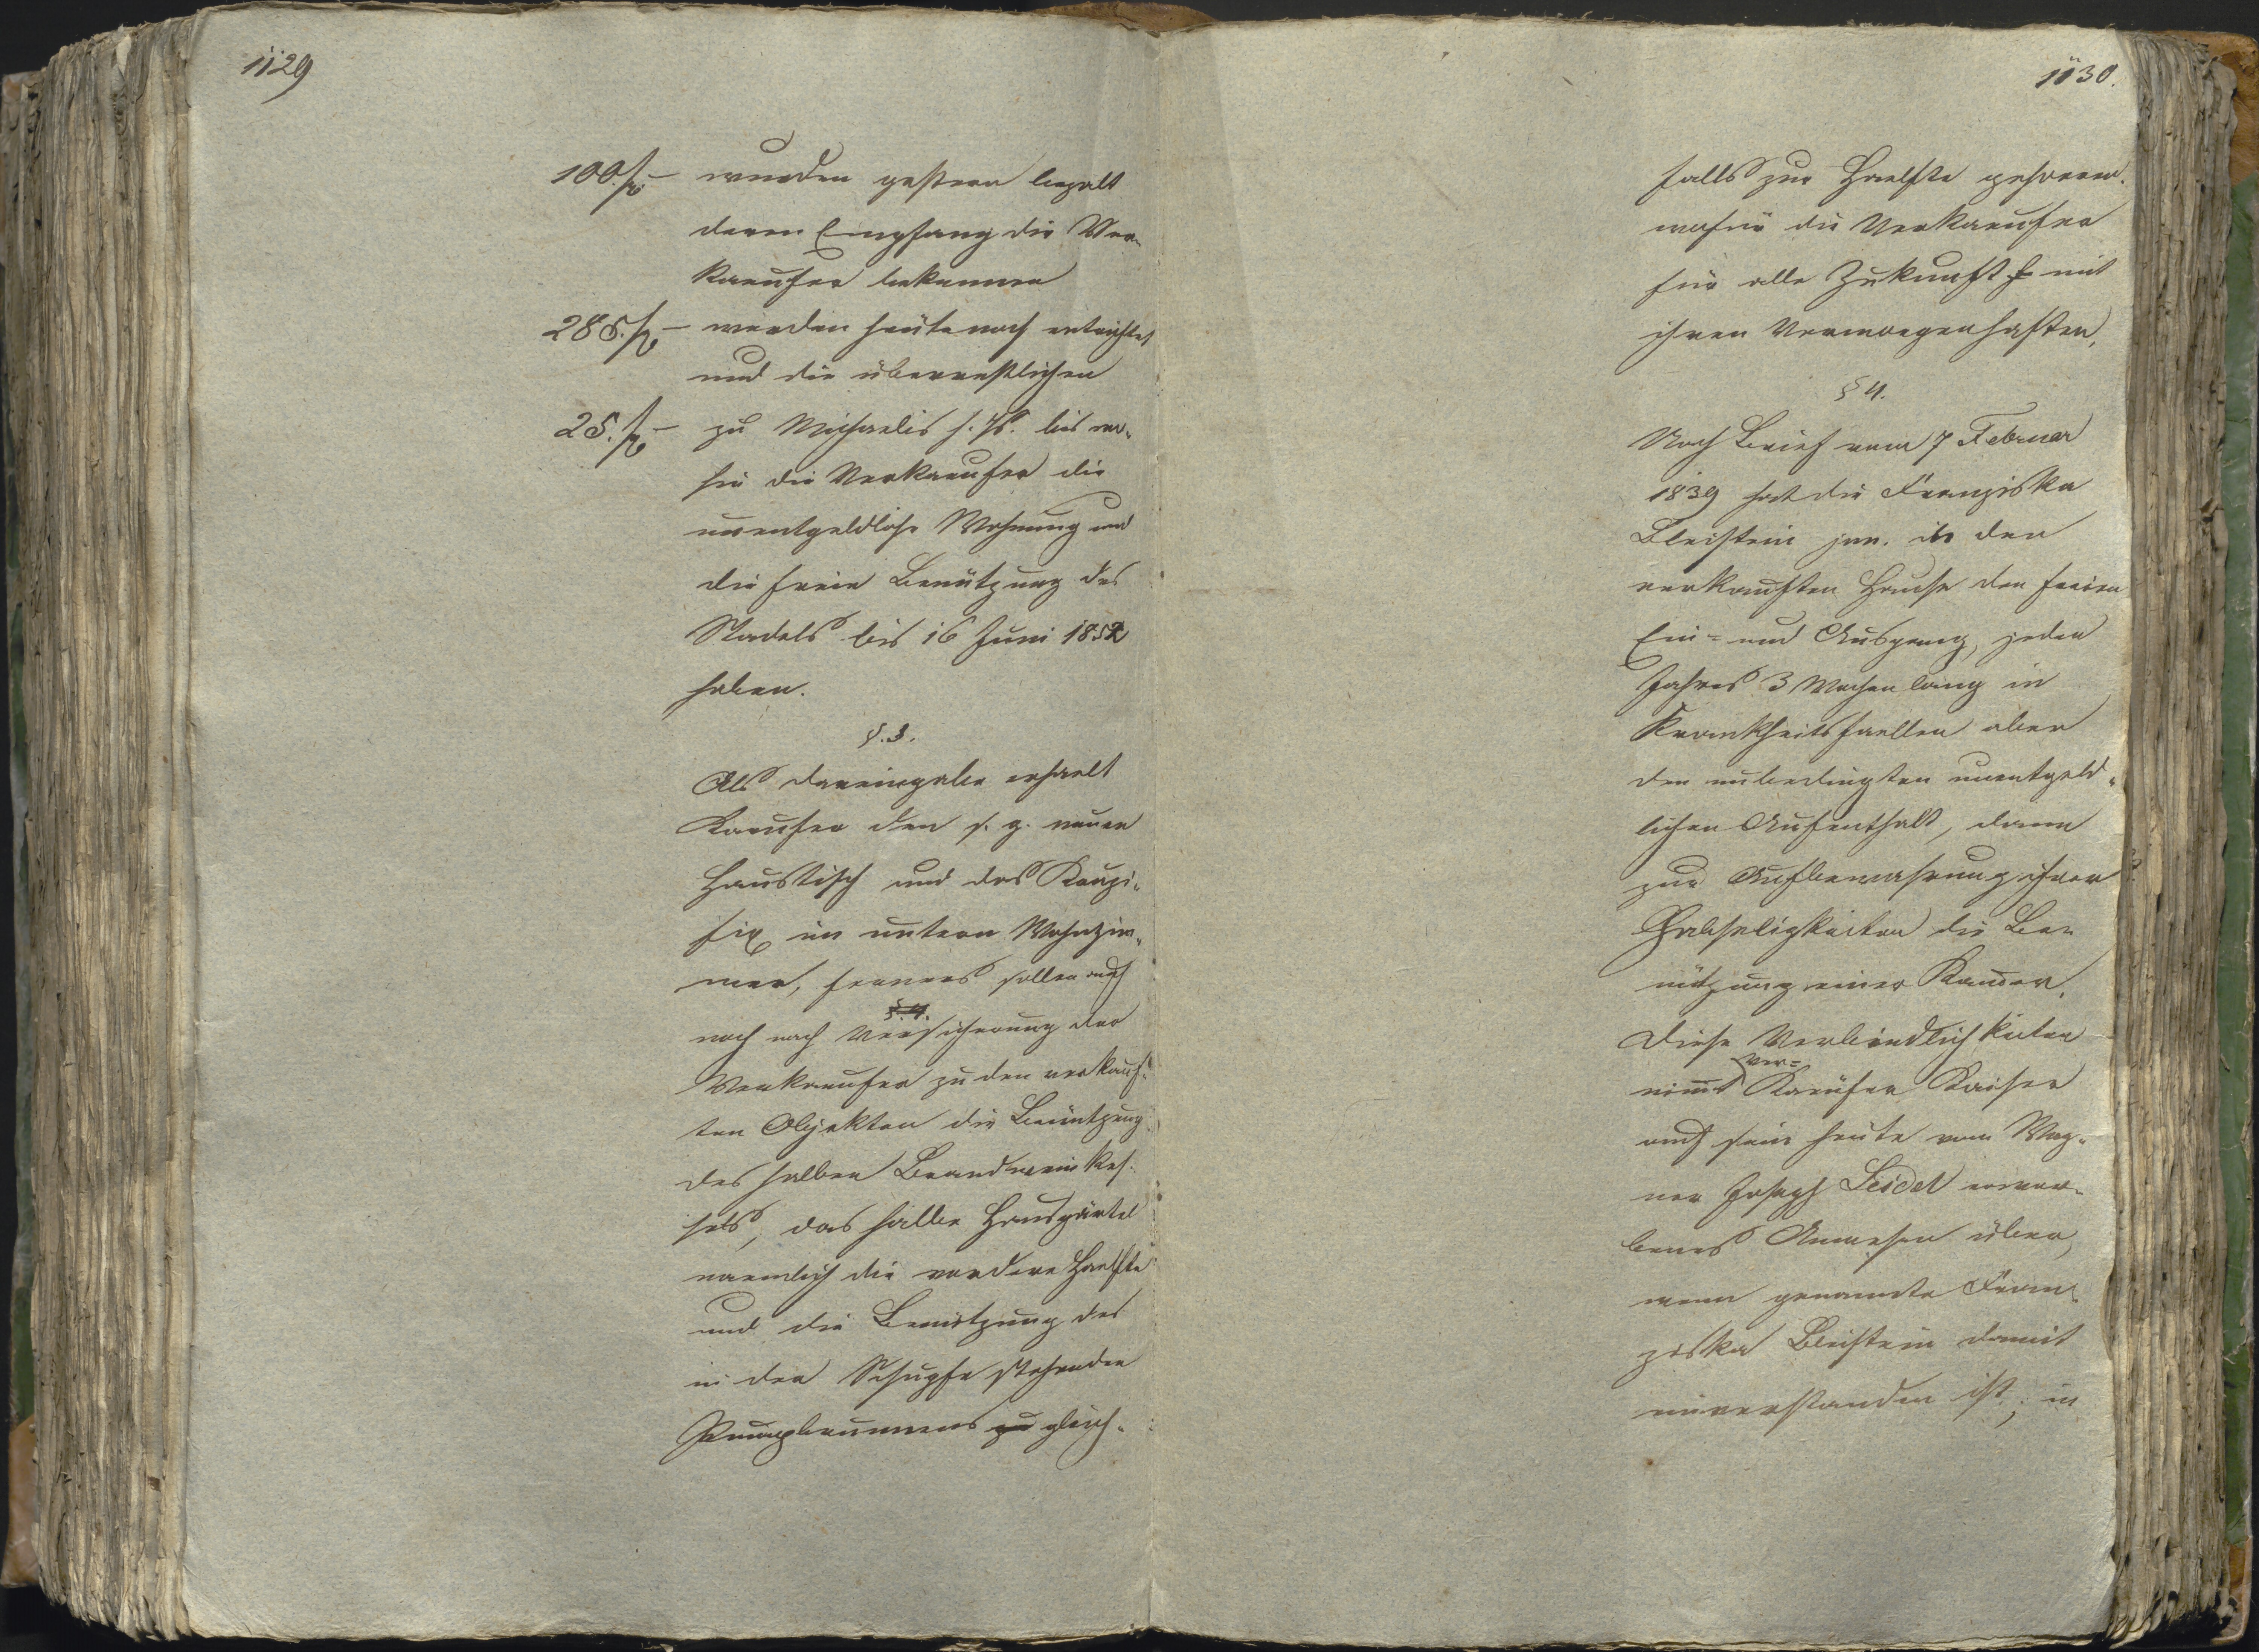 1129
100 f – wurden gestern bezalt
deren Empfang die Ver-
kaeufer bekennen
285. f – werden heute noch entrichtet
und die überrestlichen
25. f – zu Michaelis h. Js. bis wo-
hin die Verkaeufer die
unentgeldliche Wohnung und
die freie Benützung des
Stadels bis 16 Juni 1852
haben.
§. 3.
Als Dareingabe erhaelt
Kaeufer den s. g. neuen
Haustisch und das Kruzi-
fix im untern Wohnzim-
mer, ferners sollen auch
§. 4.
noch nach Versicherung der
Verkaeufer zu den verkauf-
ten Objekten die Benützung
des halben Brandweinkes-
sels, das halbe Hausgärtel
naemlich die vordere Haelfte
und die Benützung des
in der Schupfe stehenden
Pumpbrunnens zu gleich-
1130.
falls zur Haelfte gehoeren.
wofür die Verkaeufer
für alle Zukunft mit
ihren Vermoegen haften.
§ 4.
Nach Brief vom 7 Februar
1839 hat die Franziska
Bleistein jun. in den
verkauften Hause den freien
Ein- und Ausgang, jeden
Jahres 3 Wochen lang in
Krankheitsfaellen aber
den unbedingten unentgeld-
lichen Aufenthalt, dann
zur Aufbewahrung ihrer
Habseligkeiten die Be-
nützung einer Kamer.
Diese Verbindlichkeiten
ver-
nimt Kaeufer Kaiser
auf sein heute vom Wag-
ner Joseph Seidel erwor-
benes Anwesen über,
wenn genannte Fran-
ziska Bleistein damit
einverstanden ist; in